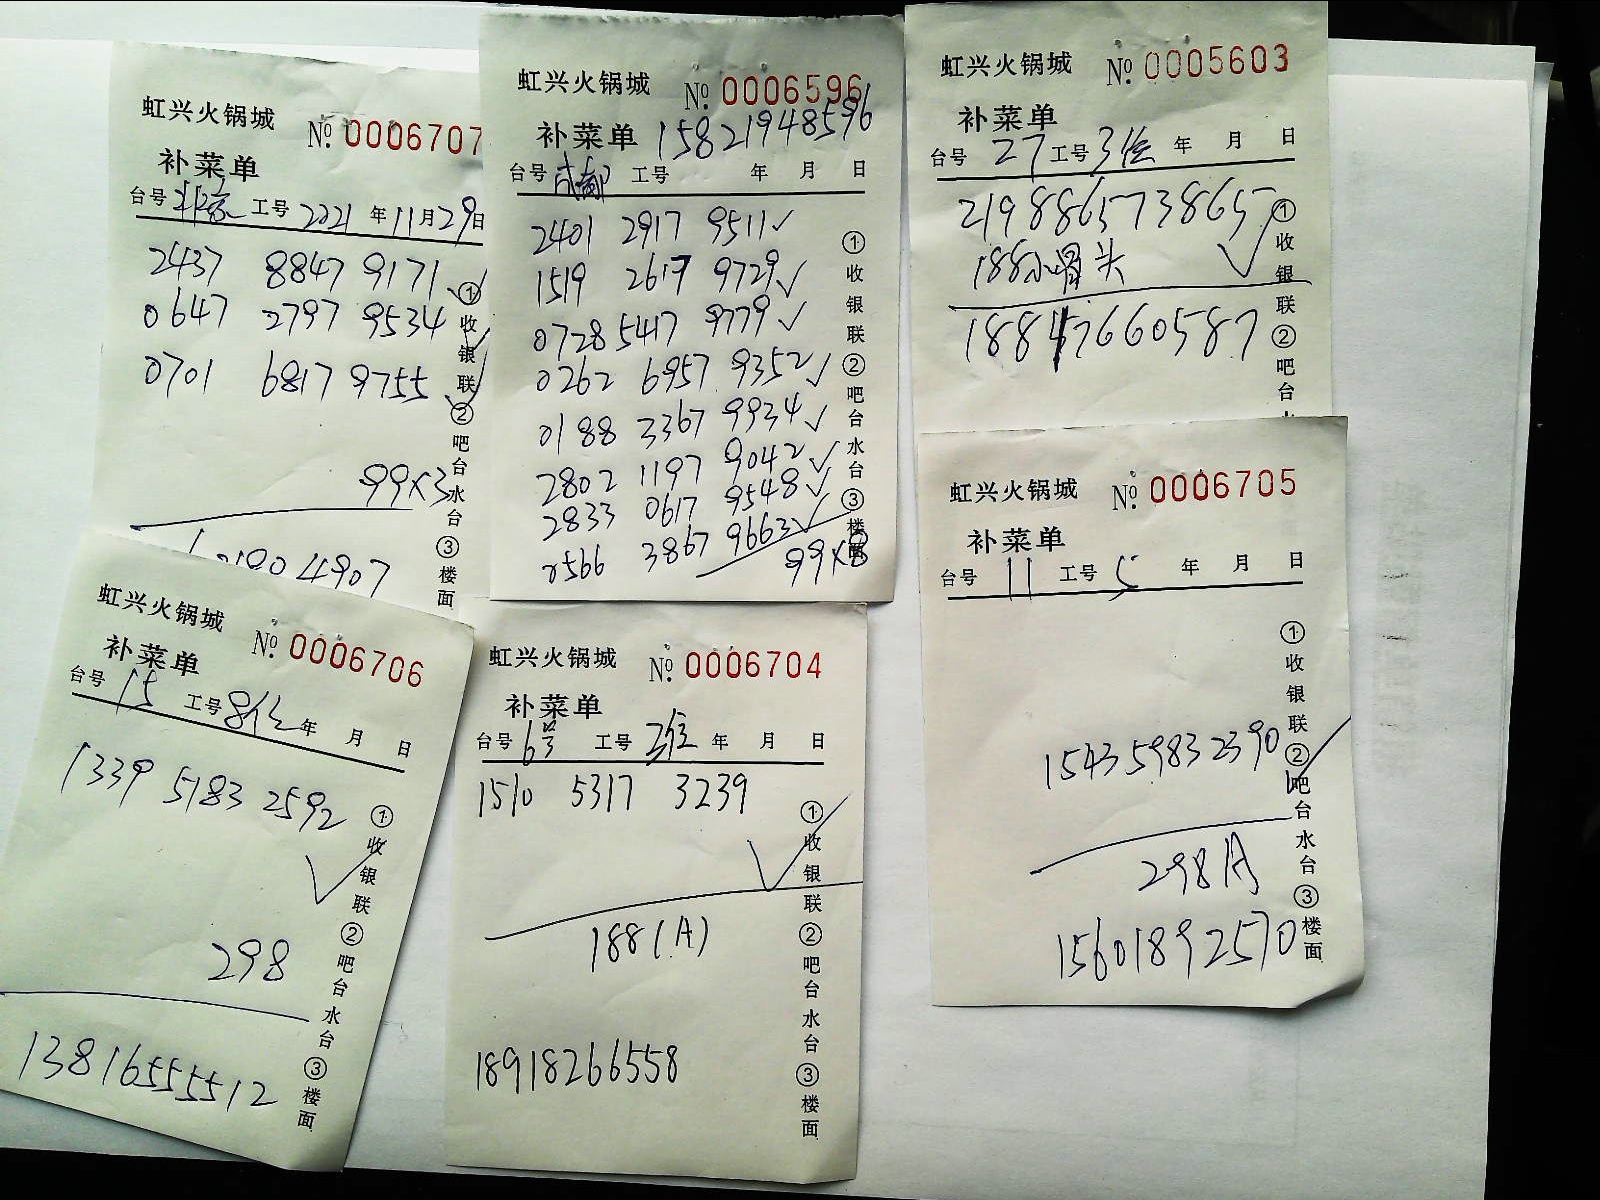 虹兴火锅城 № 0006707
补菜单
台号 北京 工号 2021 年 11 月 29 日
2437 8847 9171
0647 2797 9534
0701 6817 9755
99×3
4907
①收银联②吧台水台③楼面
虹兴火锅城 № 0006596
补菜单 15821948596
台号 成都 工号 年 月 日
2401 2917 9511
1519 2617 9729
0728 5417 9779
0262 6957 9352
0188 3367 9934
2802 1197 9042
2833 0617 9548
0566 3867 9663
99×8
①收银联②吧台水台③楼面
虹兴火锅城 № 0005603
补菜单
台号 27 工号 3位 年 月 日
219886573865
188小骨头
18817660587
①收银联②吧台水
虹兴火锅城 № 0006706
补菜单
台号 15 工号 8位 年 月 日
1339 5183 2592
298
13816555512
①收银联②吧台水台③楼面
虹兴火锅城 № 0006704
补菜单
台号 6号 工号 2位 年 月 日
1510 5317 3239
188(A)
18918266558
①收银联②吧台水台③楼面
虹兴火锅城 № 0006705
补菜单
台号 11 工号 5 年 月 日
1543 5983 2390
298A
15601892570
①收银联②吧台水台③楼面